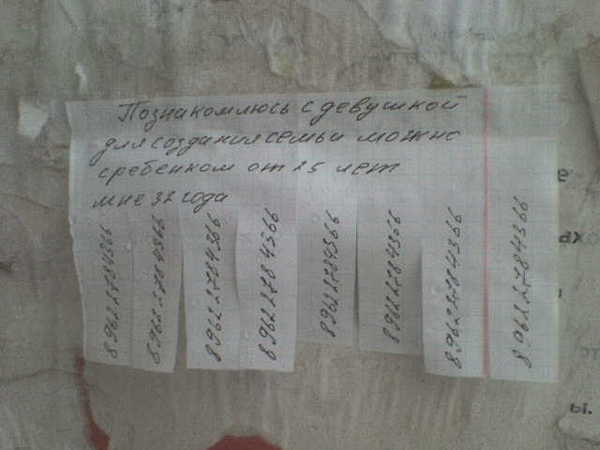 Познакомлюсь с девушкой
для создания семьи можно
с ребенком от 25 лет
мне 32 года
89622784366
89622784366
89622784366
89622784366
89622784366
89622784366
89622784366
89622784366